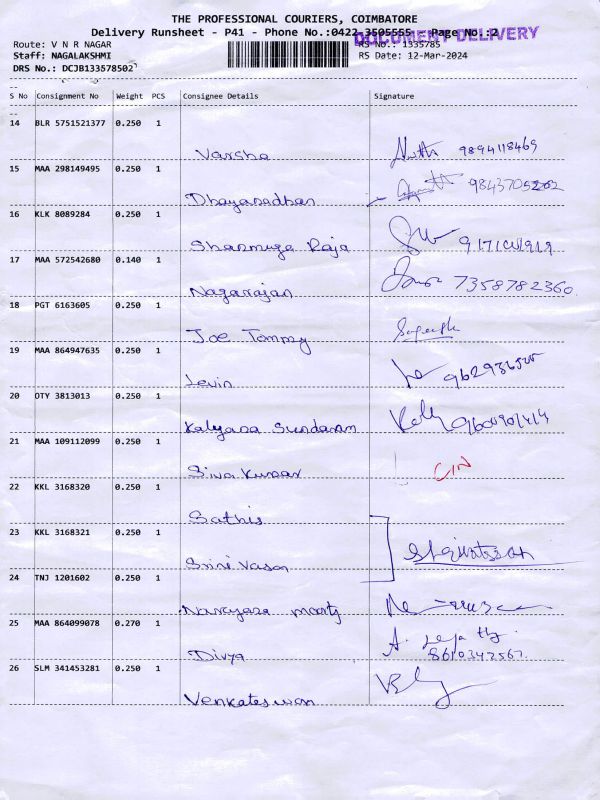 THE PROFESSIONAL COURIERS, COIMBATORE
Delivery Runsheet - P41 - Phone No.:0422 3505555 Page No.:2
DOCUMENT DELIVERY
Route: V N R NAGAR RS No.: 1335785
Staff: NAGALAKSHMI RS Date: 12-Mar-2024
DRS No.: DCJB133578502
S No Consignment No Weight PCS Consignee Details Signature
14 BLR 5751521377 0.250 1
Varsha 9894118469
15 MAA 298149495 0.250 1
Dhayanadhan
16 KLK 8089284 0.250 1
Shanmuga Raja
17 MAA 572542680 0.140 1
Nagarajan 7358782360
18 PGT 6163605 0.250 1
Joe Tommy
19 MAA 864947635 0.250 1
Levin
20 OTY 3813013 0.250 1
Kalyana Sundaram
21 MAA 109112099 0.250 1
Siva Kumar
22 KKL 3168320 0.250 1
Sathis
23 KKL 3168321 0.250 1
Srini Vasan
24 TNJ 1201602 0.250 1
Narayana moorty
25 MAA 864099078 0.270 1
Divya 8610342567
26 SLM 341453281 0.250 1
Venkateswan